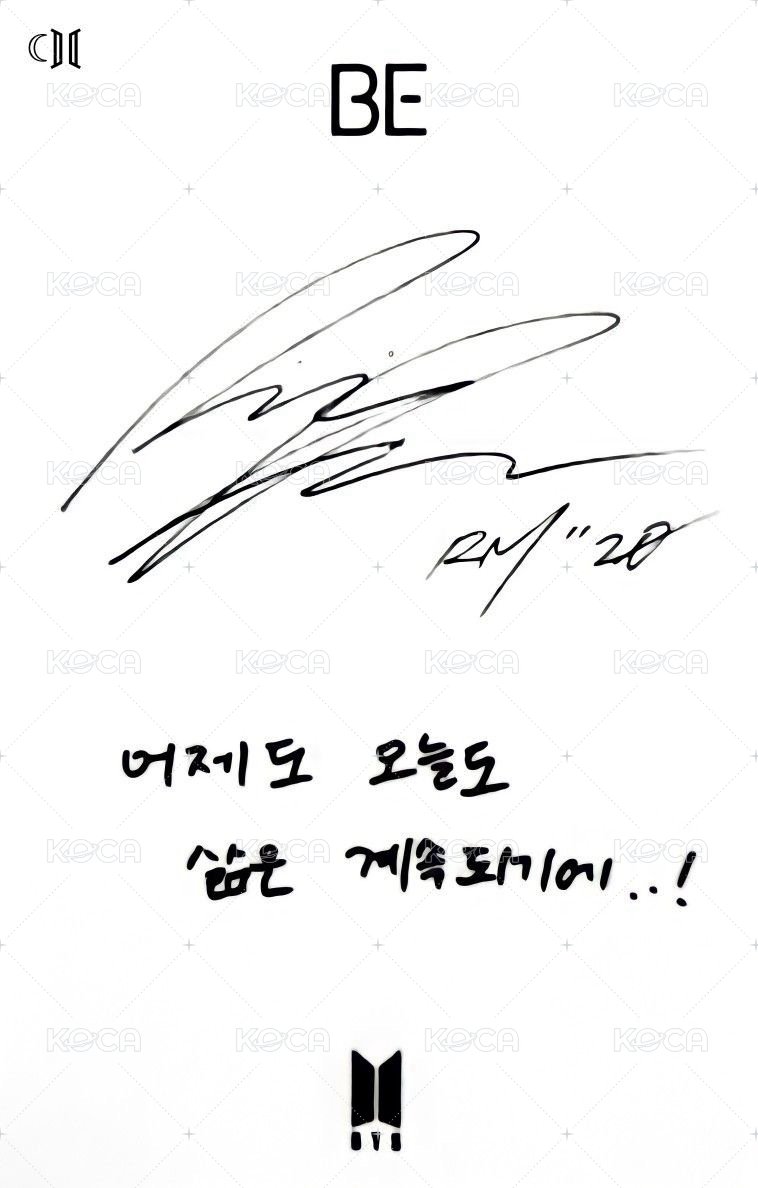 BE
RM "20
어제도 오늘도
삶은 계속되기에..!
BTS
KOCA